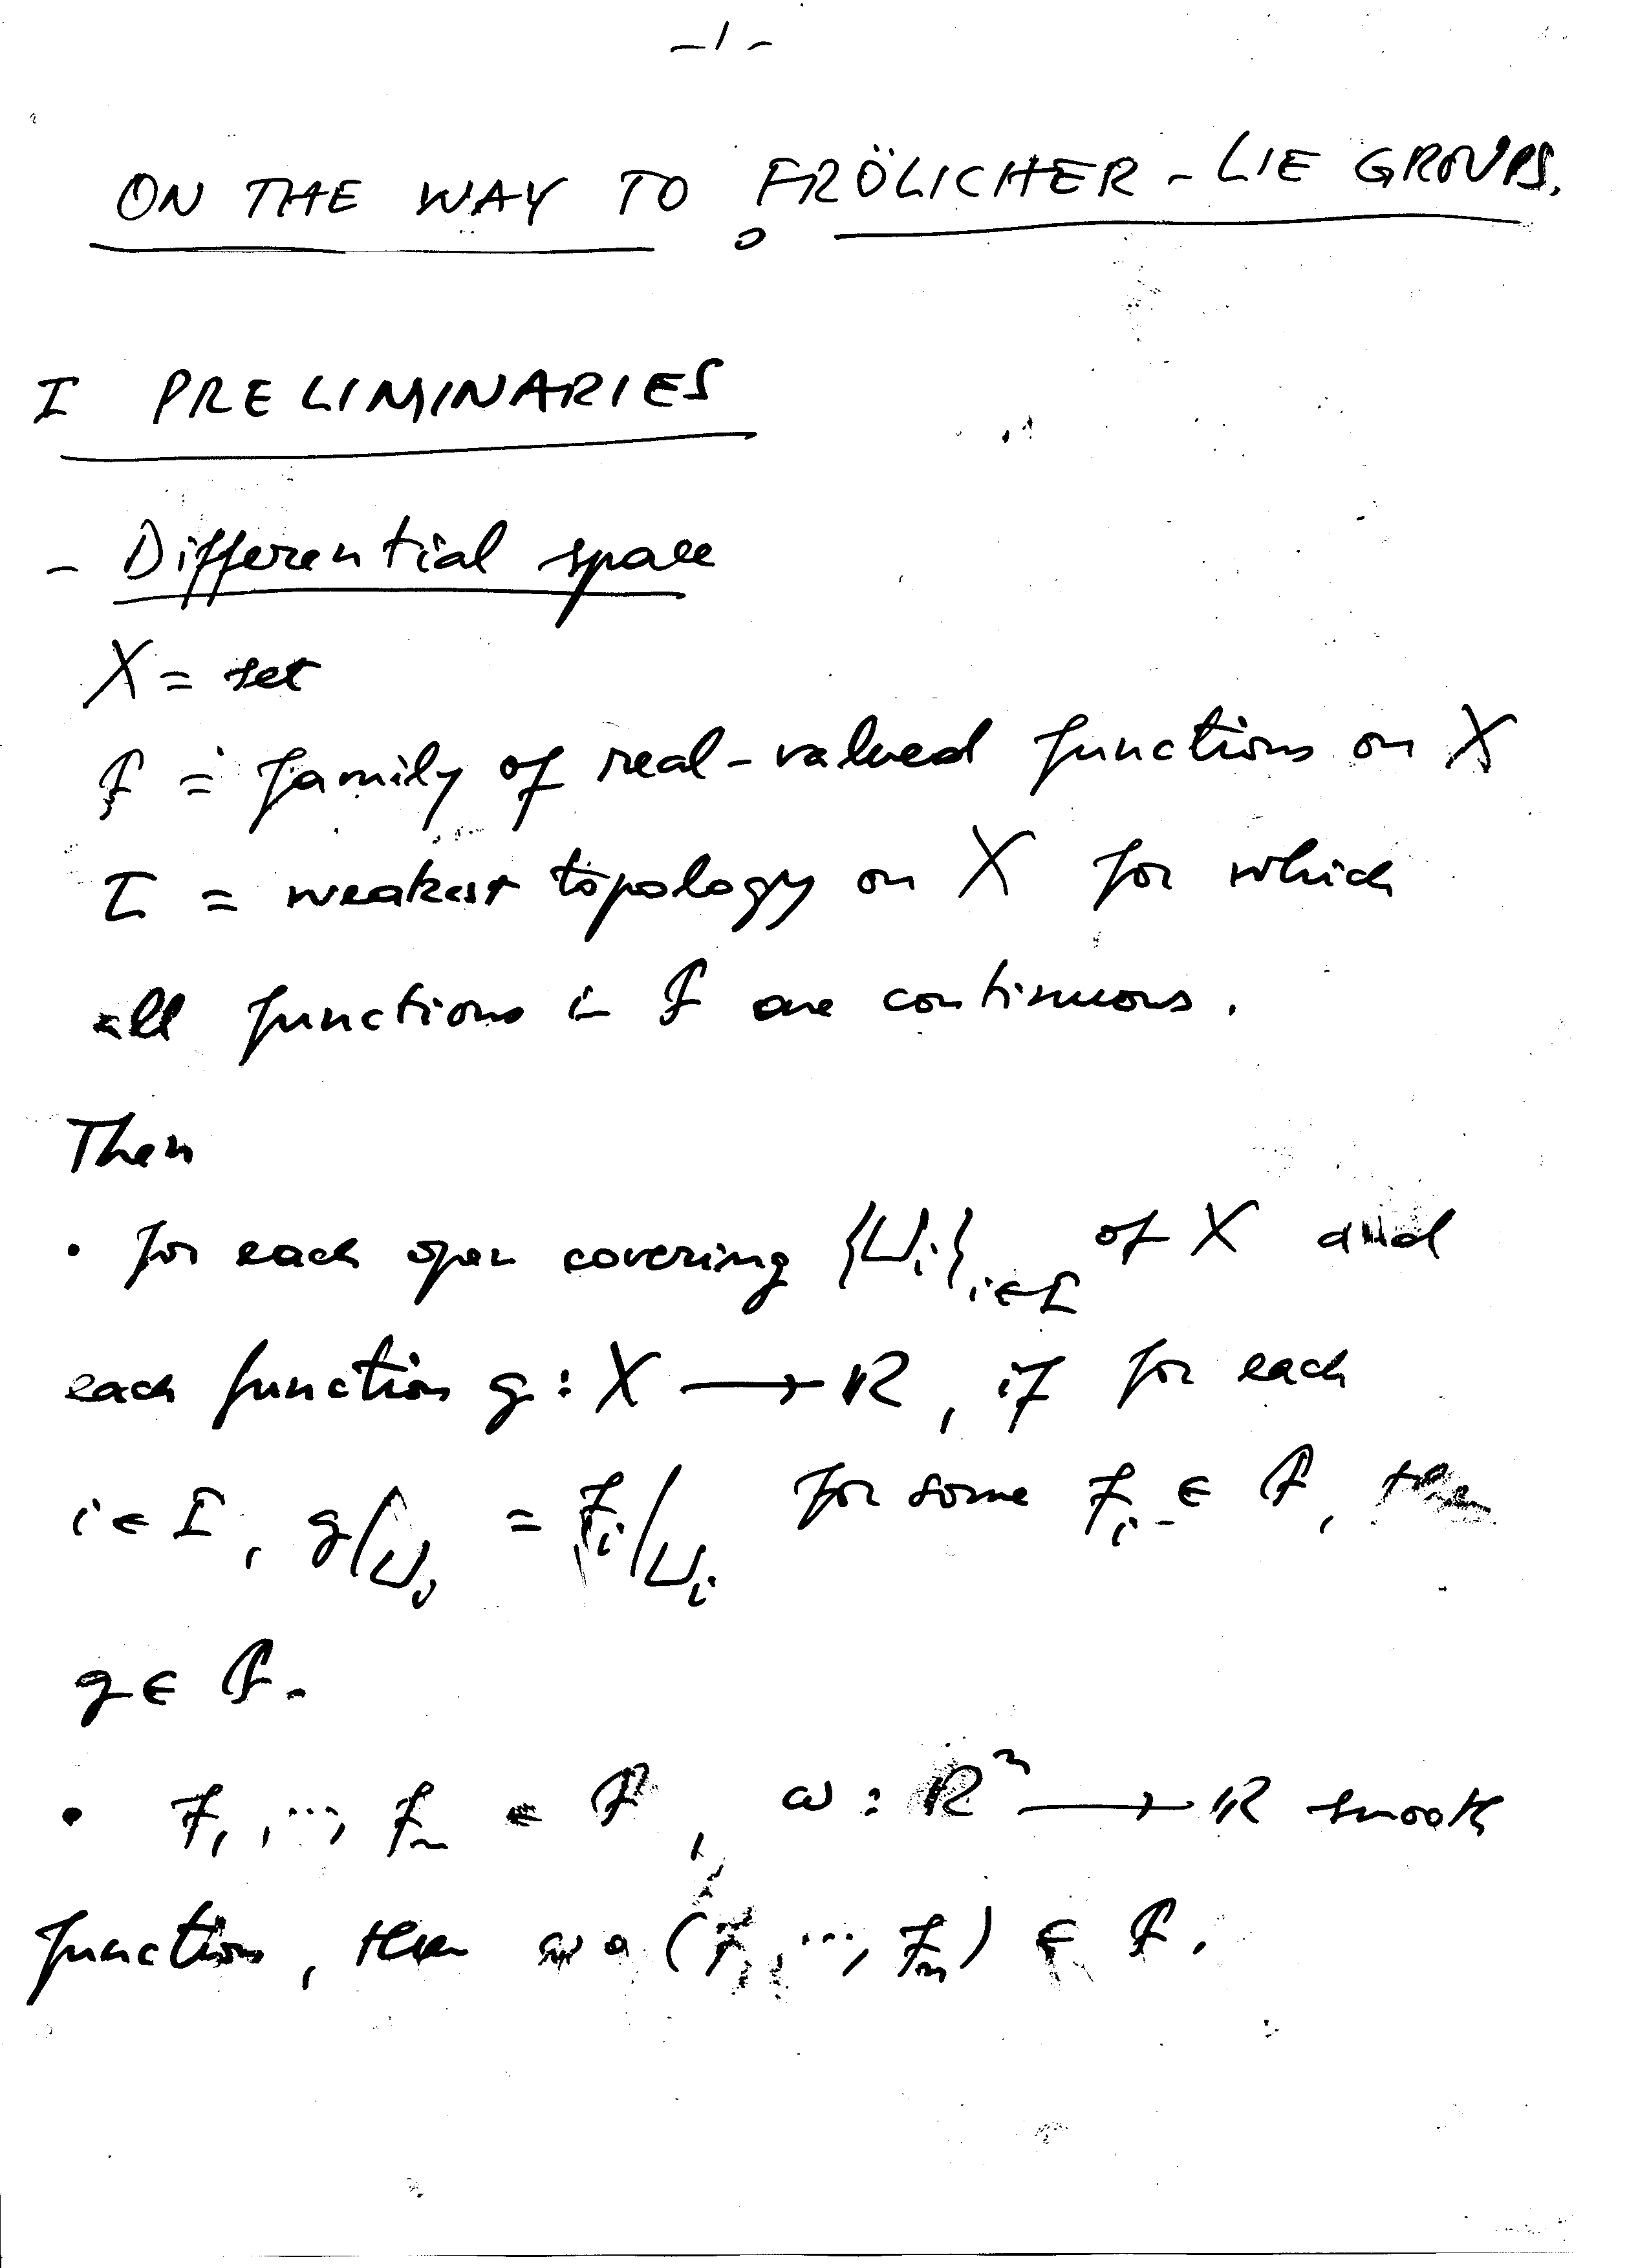 -1-
ON THE WAY TO FRÖLICHER-LIE GROUPS.
I PRELIMINARIES
- Differential space
X = set
ℱ = family of real-valued functions on X
τ = weakest topology on X for which
all functions in ℱ are continuous.
Then
• for each open covering {U_i}_{i∈I} of X and
each function g : X ⟶ ℝ, if for each
i ∈ I, g|_{U_i} = f_i|_{U_i} for some f_i ∈ ℱ, then
g ∈ ℱ.
• f_1, ..., f_n ∈ ℱ, ω : ℝ^n ⟶ ℝ smooth
function, then ω∘(f_1, ..., f_n) ∈ ℱ.